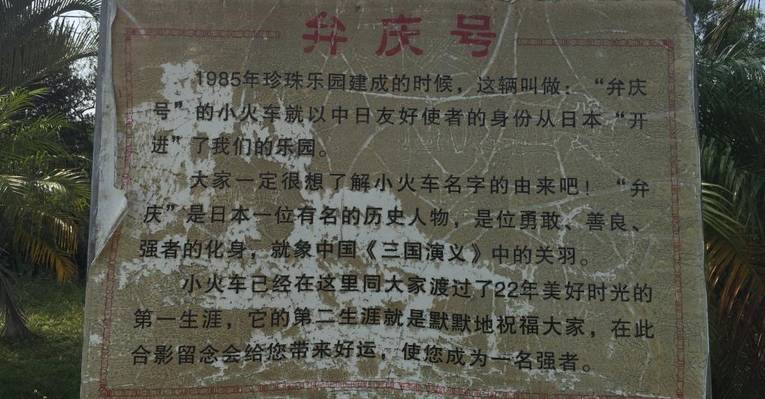 弁庆号
1985年珍珠乐园建成的时候，这辆叫做：“弁庆
号”的小火车就以中日友好使者的身份从日本“开
进”了我们的乐园。
大家一定很想了解小火车名字的由来吧！“弁
庆”是日本一位有名的历史人物，是位勇敢、善良、
强者的化身，就象中国《三国演义》中的关羽。
小火车已经在这里同大家渡过了22年美好时光的
第一生涯，它的第二生涯就是默默地祝福大家，在此
合影留念会给您带来好运，使您成为一名强者。